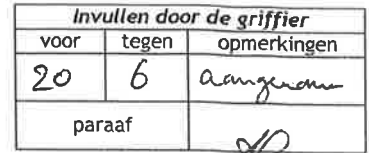 Invullen door de griffier
voor tegen opmerkingen
20 6 aangenomen
paraaf